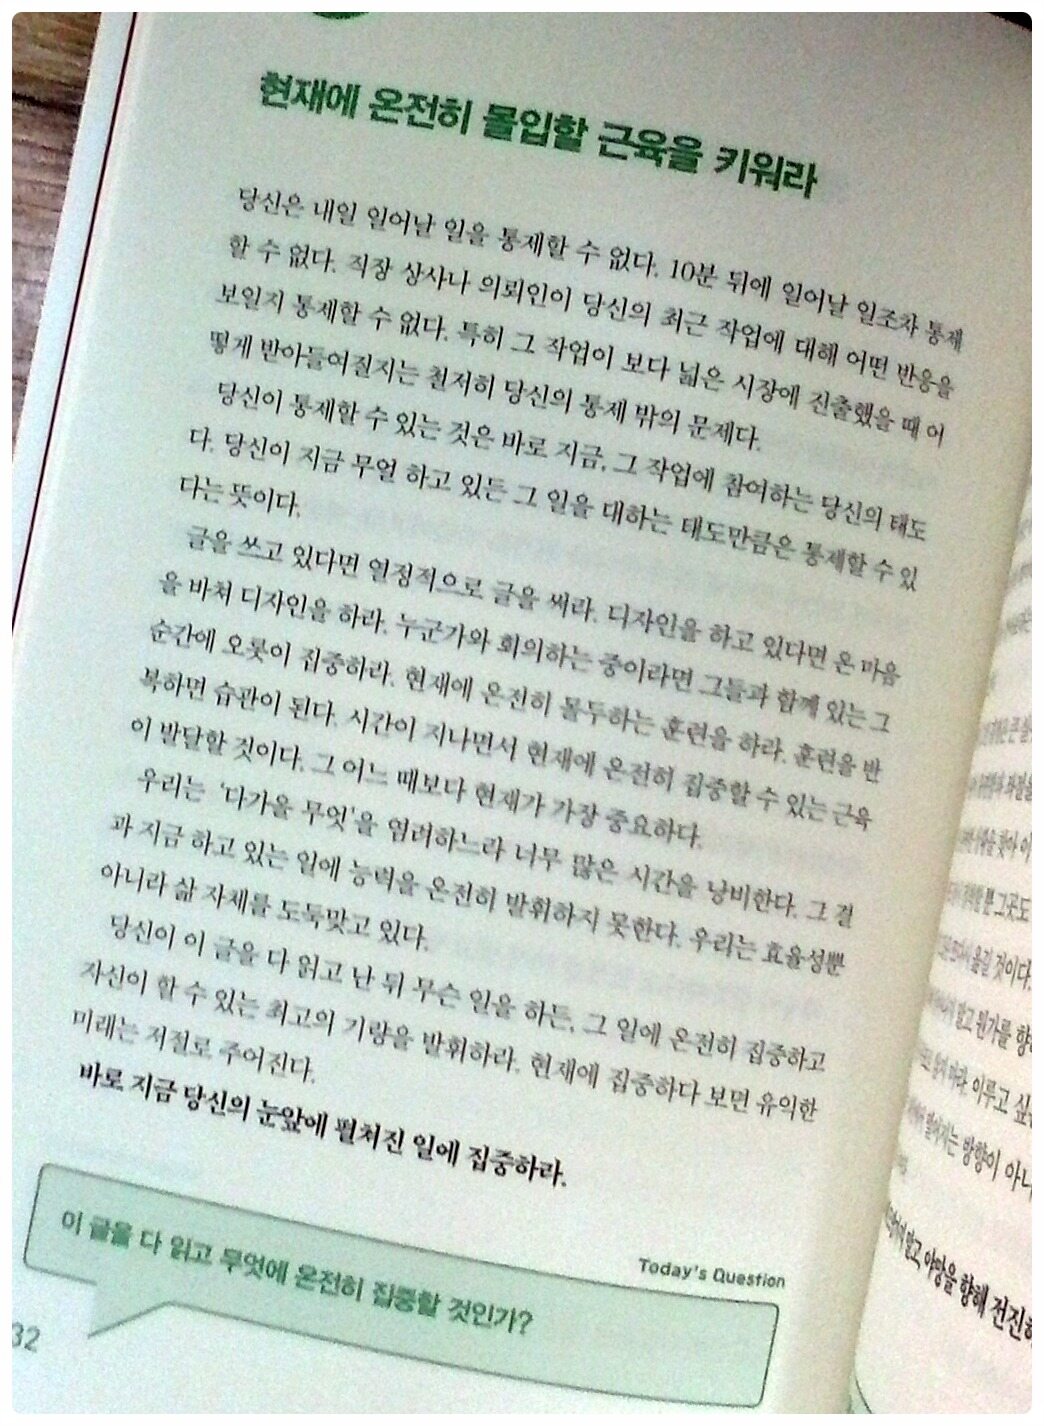 현재에 온전히 몰입할 근육을 키워라
당신은 내일 일어날 일을 통제할 수 없다. 10분 뒤에 일어날 일조차 통제
할 수 없다. 직장 상사나 의뢰인이 당신의 최근 작업에 대해 어떤 반응을
보일지 통제할 수 없다. 특히 그 작업이 보다 넓은 시장에 진출했을 때 어
떻게 받아들여질지는 철저히 당신의 통제 밖의 문제다.
당신이 통제할 수 있는 것은 바로 지금, 그 작업에 참여하는 당신의 태도
다. 당신이 지금 무얼 하고 있든 그 일을 대하는 태도만큼은 통제할 수 있
다는 뜻이다.
글을 쓰고 있다면 열정적으로 글을 써라. 디자인을 하고 있다면 온 마음
을 바쳐 디자인을 하라. 누군가와 회의하는 중이라면 그들과 함께 있는 그
순간에 오롯이 집중하라. 현재에 온전히 몰두하는 훈련을 하라. 훈련을 반
복하면 습관이 된다. 시간이 지나면서 현재에 온전히 집중할 수 있는 근육
이 발달할 것이다. 그 어느 때보다 현재가 가장 중요하다.
우리는 '다가올 무엇'을 염려하느라 너무 많은 시간을 낭비한다. 그 결
과 지금 하고 있는 일에 능력을 온전히 발휘하지 못한다. 우리는 효율성뿐
아니라 삶 자체를 도둑맞고 있다.
당신이 이 글을 다 읽고 난 뒤 무슨 일을 하든, 그 일에 온전히 집중하고
자신이 할 수 있는 최고의 기량을 발휘하라. 현재에 집중하다 보면 유익한
미래는 저절로 주어진다.
바로 지금 당신의 눈앞에 펼쳐진 일에 집중하라.
Today's Question
이 글을 다 읽고 무엇에 온전히 집중할 것인가?
32
그곳도
옮길 것이다.
말고 뭔가를 향
마라. 이루고 싶은
방향이 아니
말고, 야망을 향해 전진하